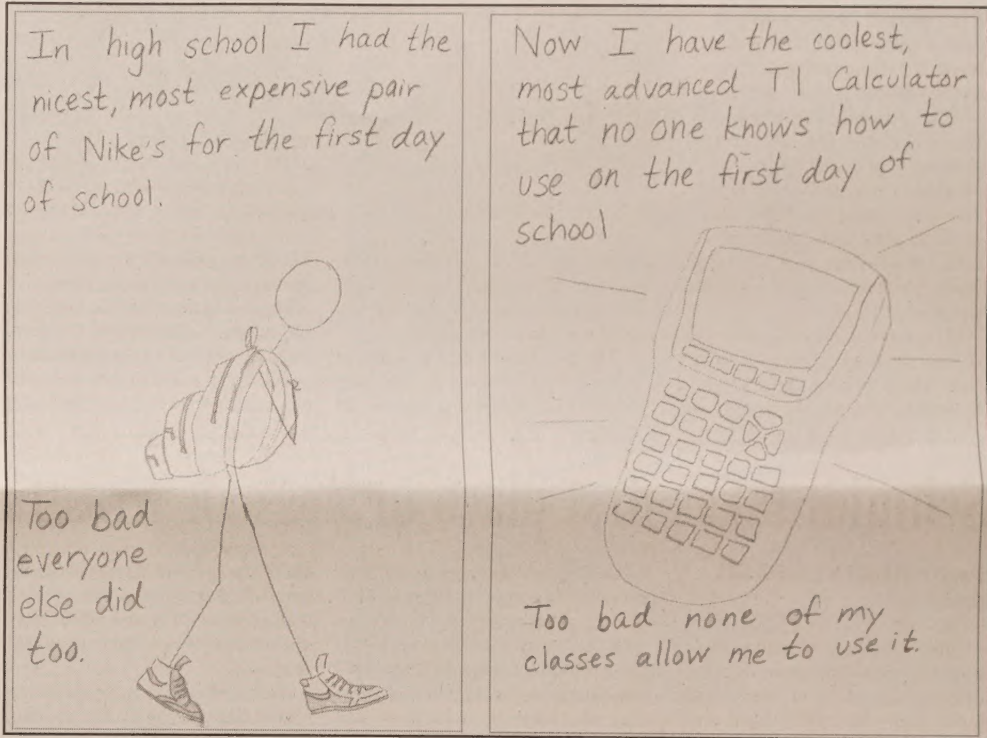 In high school I had the
nicest, most expensive pair
of Nike's for the first day
of school.
Too bad
everyone
else did
too.
Now I have the coolest,
most advanced TI Calculator
that no one knows how to
use on the first day of
school
Too bad none of my
classes allow me to use it.